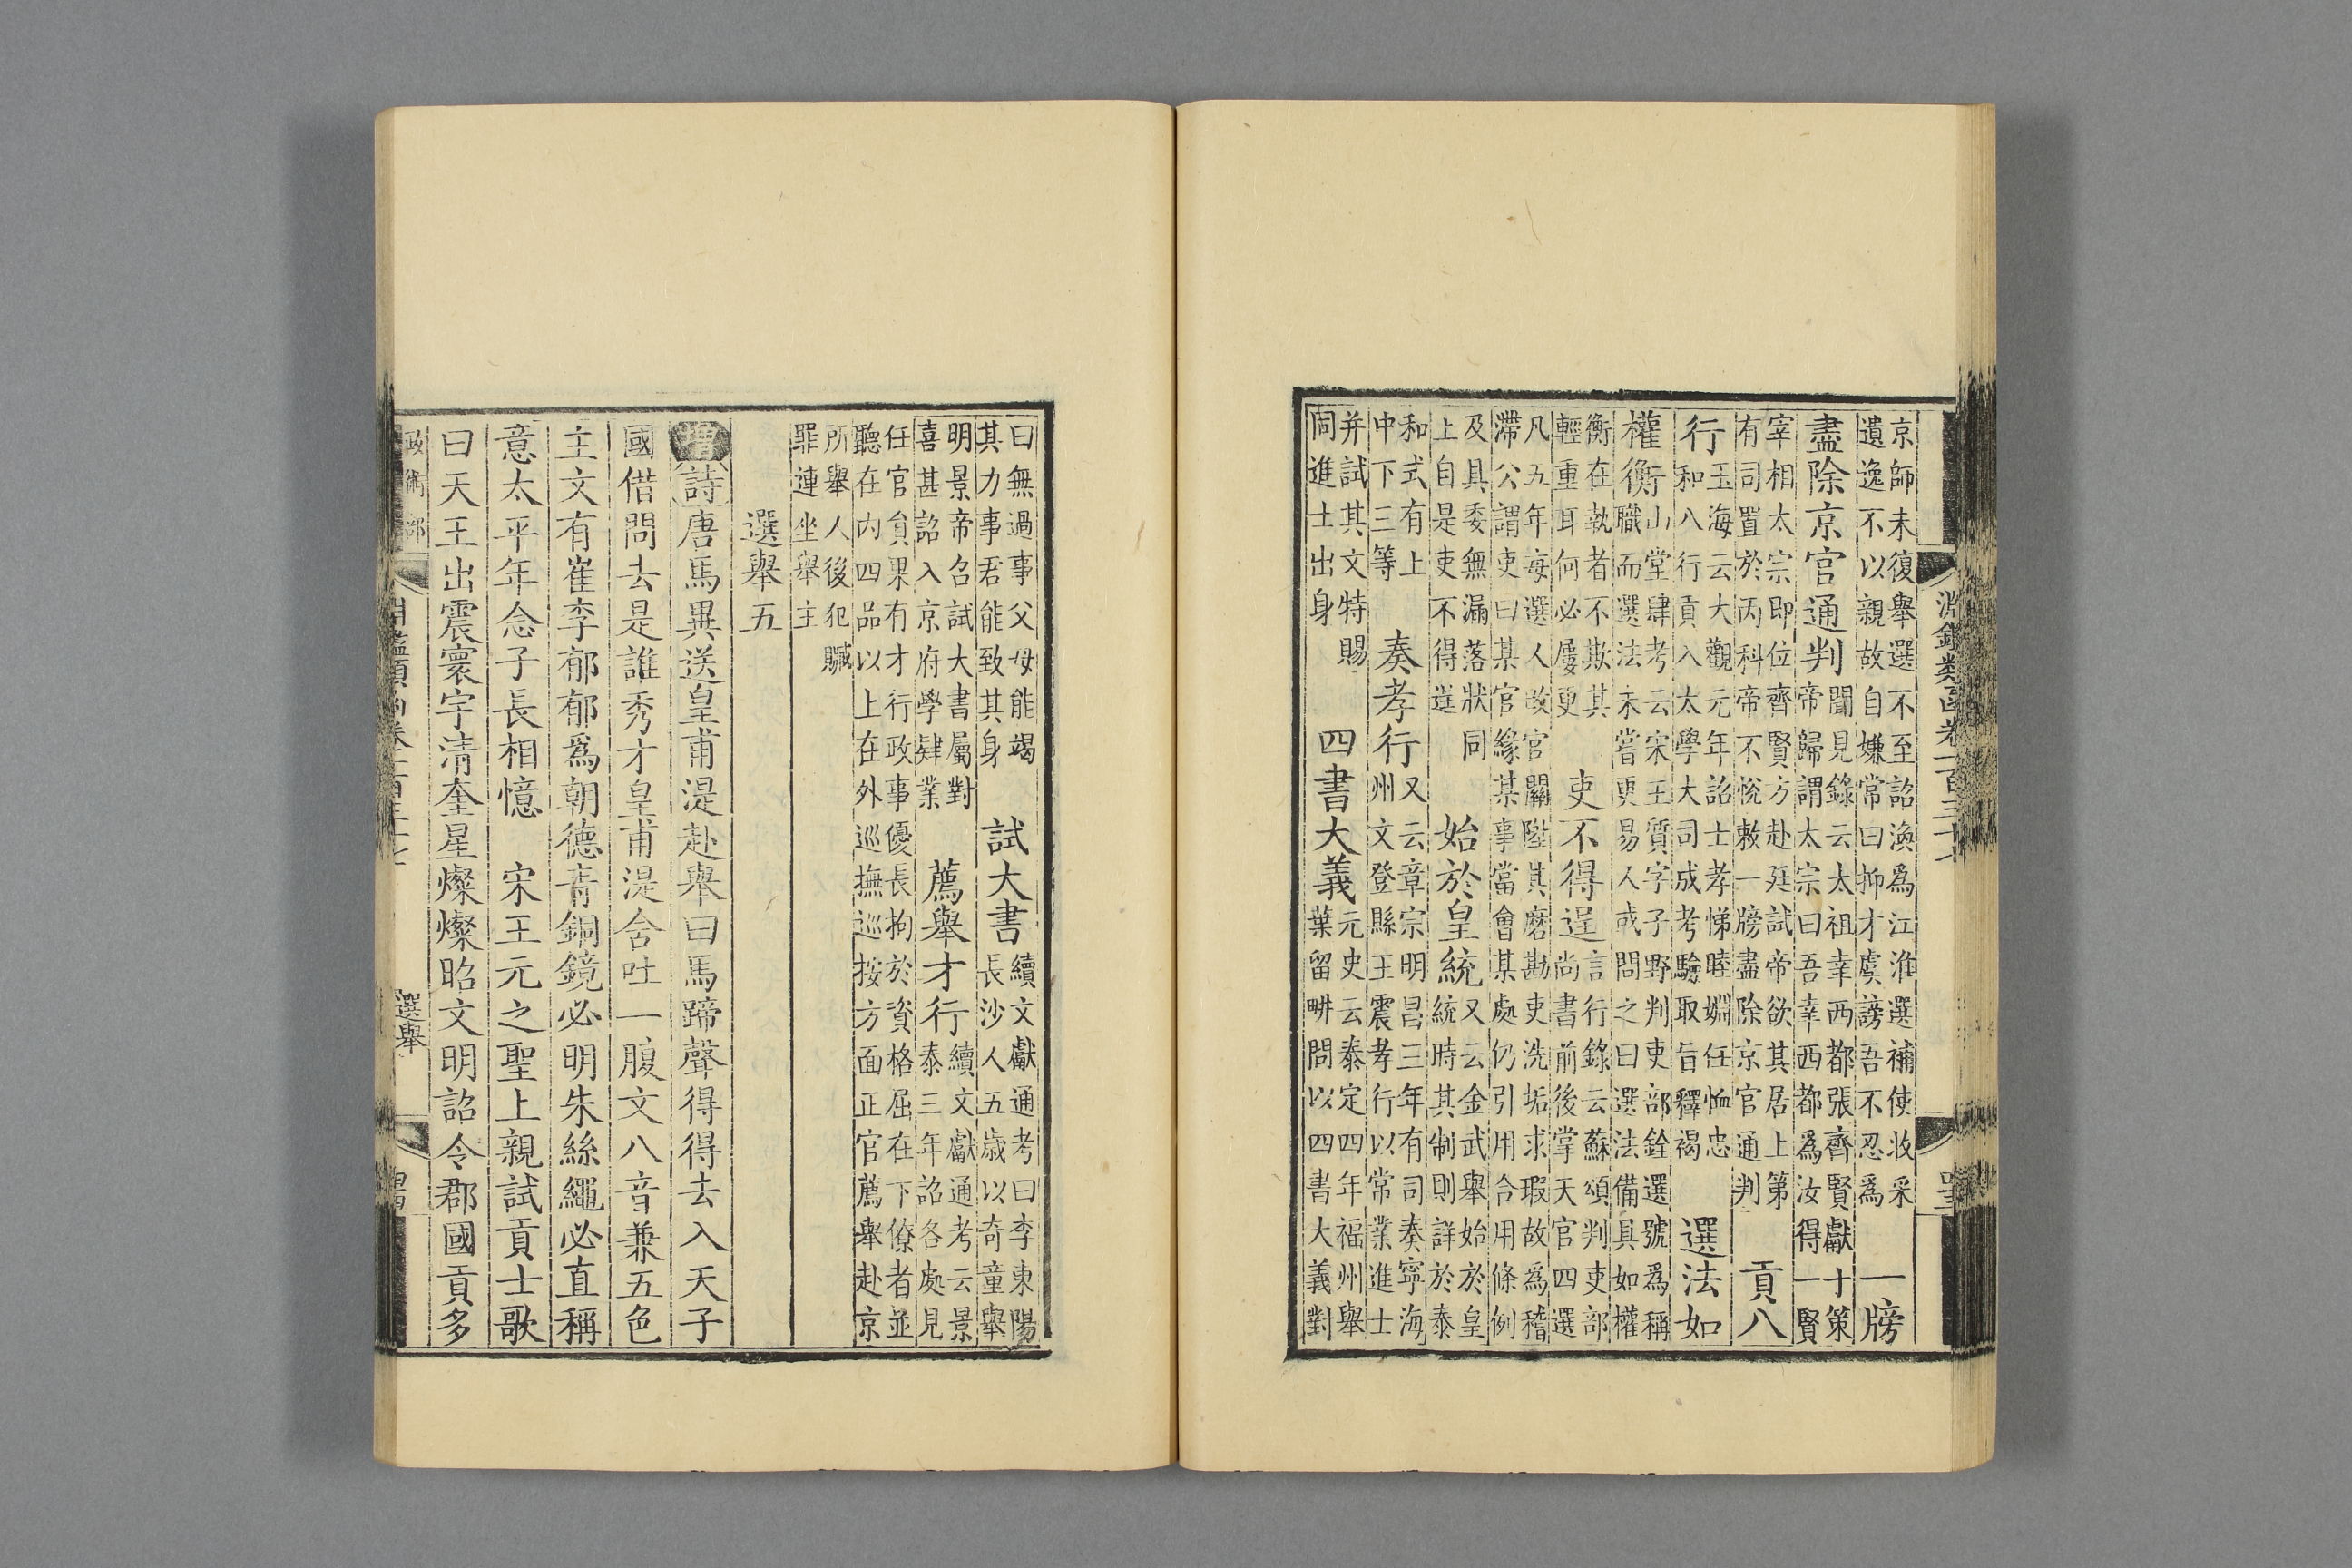 淵鑑類函卷一百三十七
京師未復舉選不至詔渙爲江淮選補使收采
遺逸不以親故自嫌常曰抑才虞謗吾不忍爲
一牓
盡除京官通判
聞見錄云太祖幸西都張齊賢獻十策
帝歸謂太宗曰吾幸西都爲汝得一賢
宰相太宗即位齊賢方赴廷試帝欲其居上第
有司置於丙科帝不悅敕一牓盡除京官通判
貢八
行
玉海云大觀元年詔士孝悌睦婣任恤忠
和八行貢入太學大司成考驗取旨釋褐
選法如
權衡
山堂肆考云宋王質字子野判吏部銓選號爲稱
職而選法未嘗更易人或問之曰選法備具如權
衡在執者不欺其
輕重耳何必屢更
吏不得逞
言行錄云蘇頌判吏部
尚書前後掌天官四選
凡五年每選人改官關陞其磨勘吏洗垢求瑕故爲稽
滯公謂吏曰某官緣某事當會某處仍引用合用條例
及具委無漏落狀同
上自是吏不得逞
始於皇統
又云金武舉始於皇
統時其制則詳於泰
和式有上
中下三等
奏孝行
又云章宗明昌三年有司奏寧海
州文登縣王震孝行以常業進士
并試其文特賜
同進士出身
四書大義
元史云泰定四年福州舉
葉留畊問以四書大義對
曰無過事父母能竭
其力事君能致其身
試大書
續文獻通考曰李東陽
長沙人五歲以奇童舉
明景帝召試大書屬對
喜甚詔入京府學肄業
薦舉才行
續文獻通考云景
泰三年詔各處見
任官員果有才行政事優長拘於資格屈在下僚者並
聽在內四品以上在外巡撫巡按方面正官薦舉赴京
所舉人後犯贓
罪連坐舉主
選舉五
增詩唐馬異送皇甫湜赴舉曰馬蹄聲得得去入天子
國借問去是誰秀才皇甫湜含吐一腹文八音兼五色
主文有崔李郁郁爲朝德青銅鏡必明朱絲繩必直稱
意太平年念子長相憶 宋王元之聖上親試貢士歌
曰天王出震寰宇清奎星燦燦昭文明詔令郡國貢多
政術部
選舉